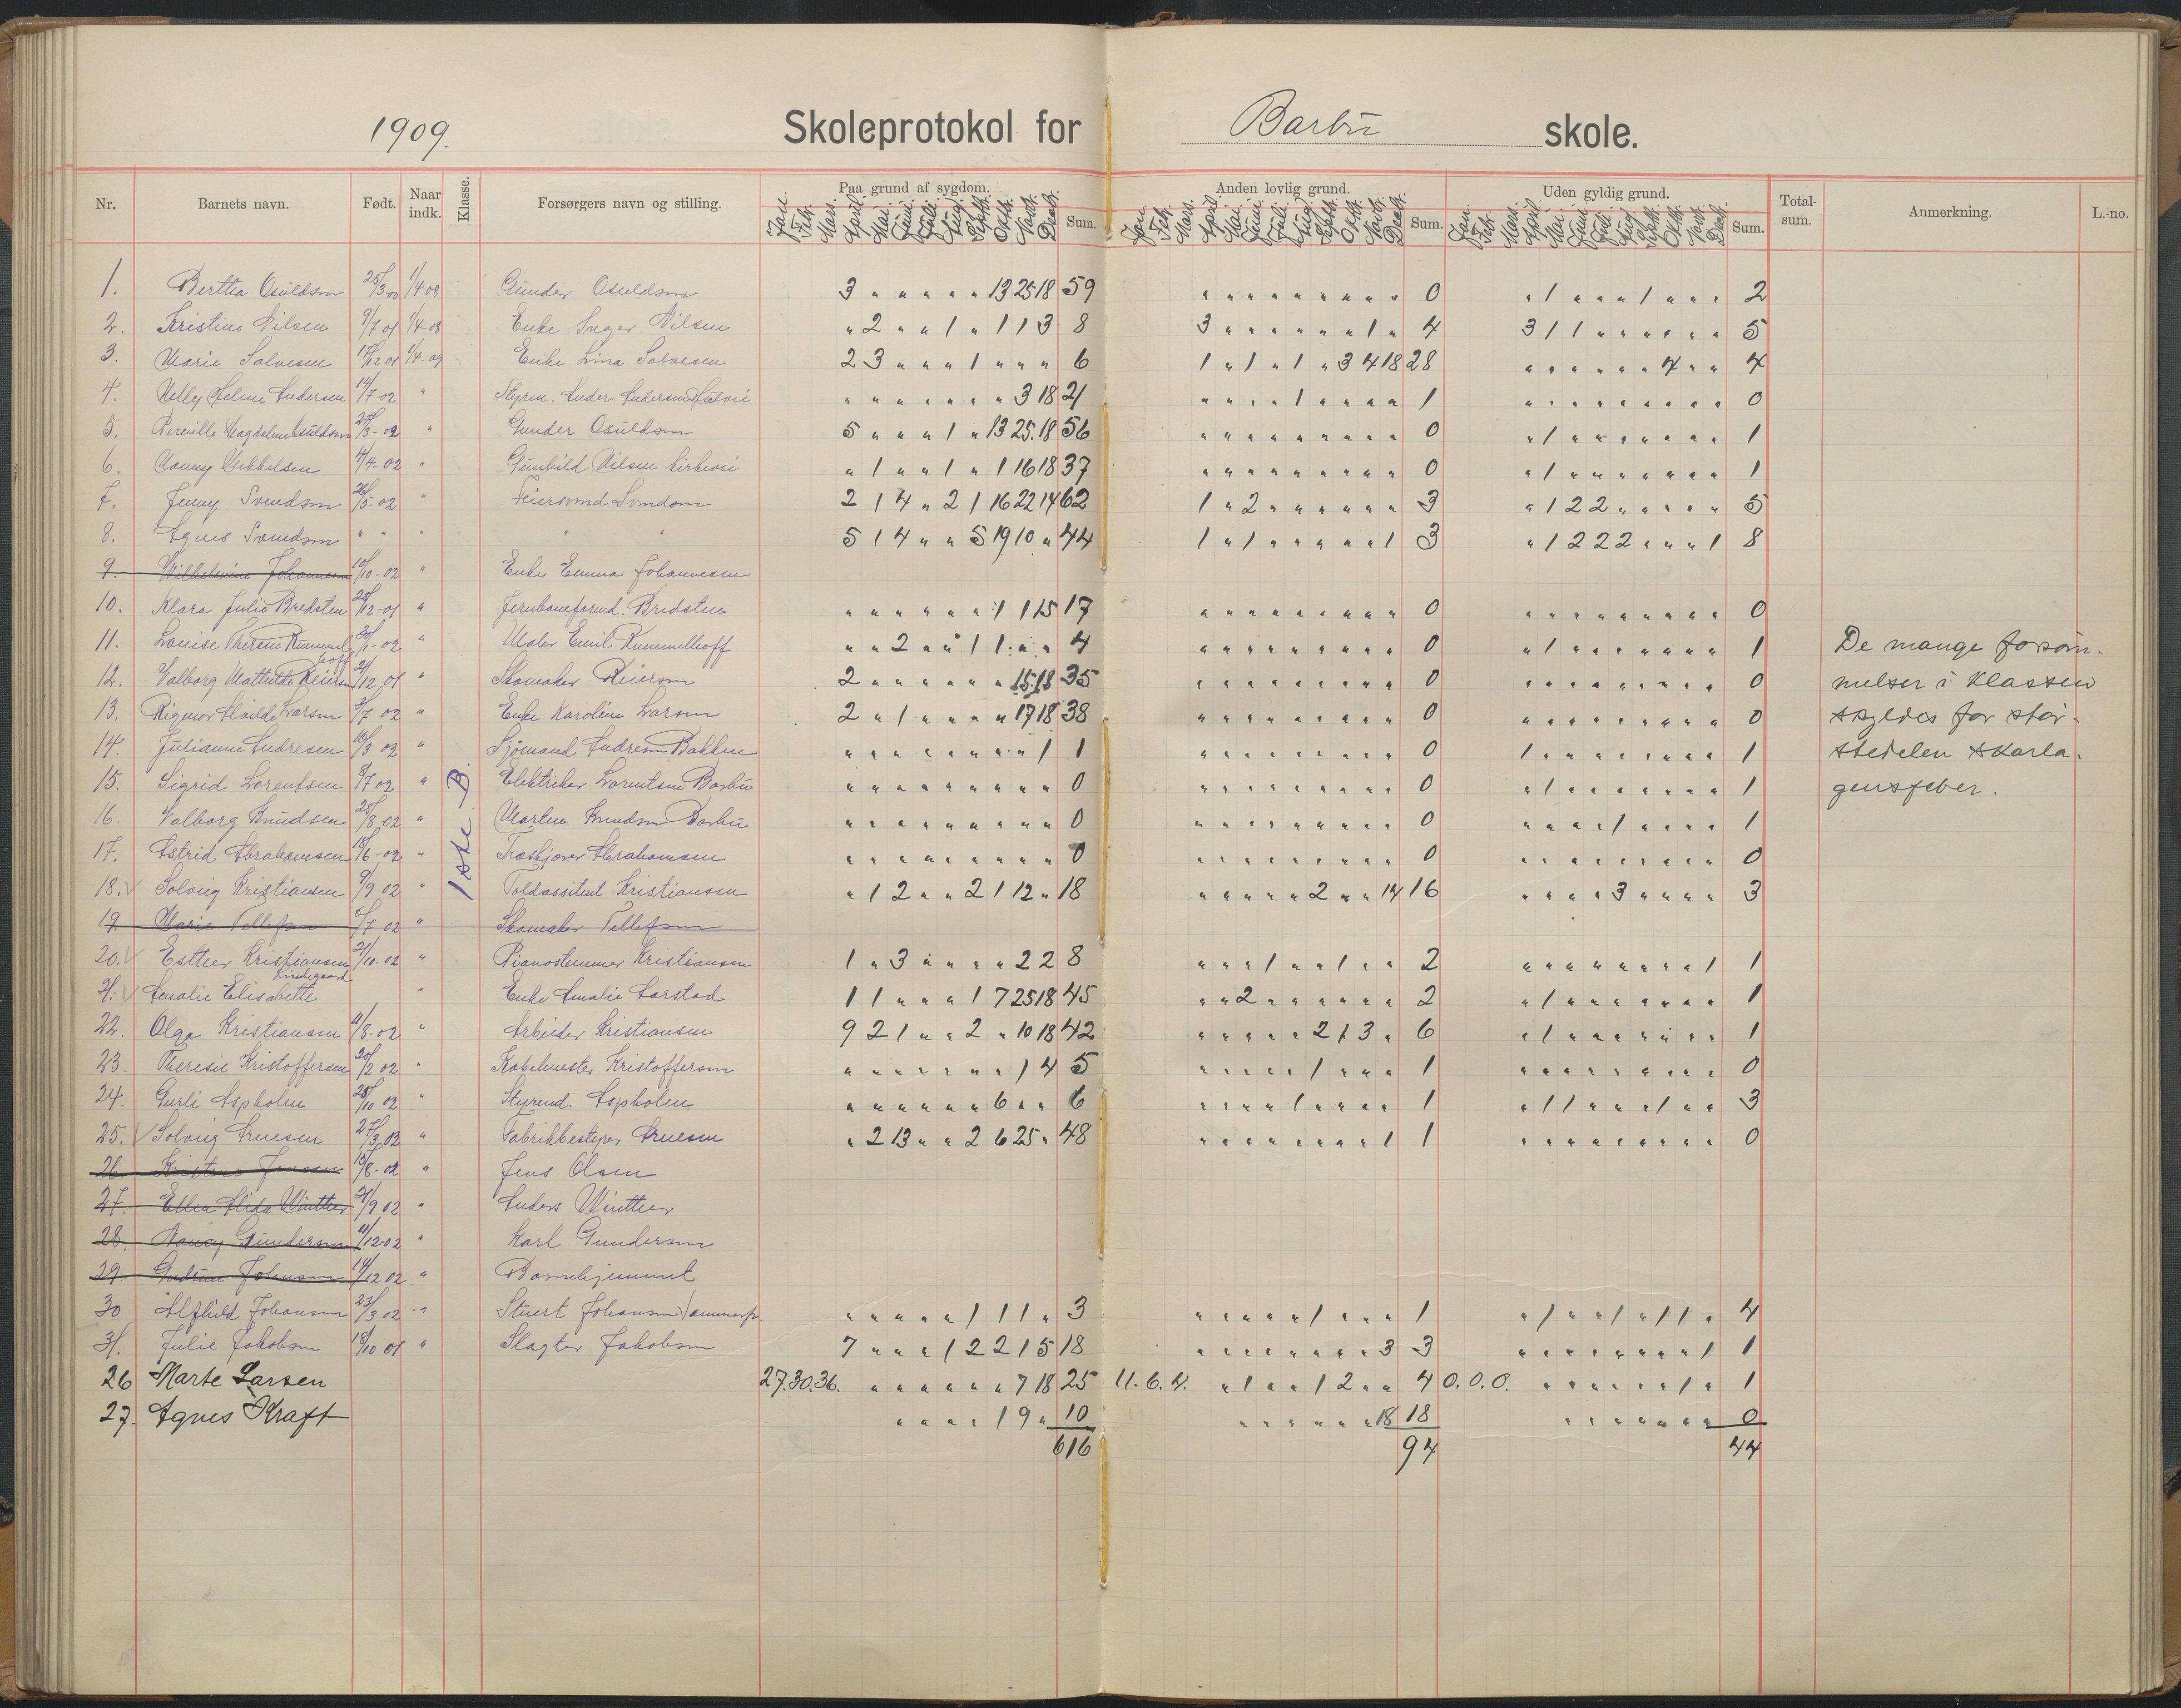 1909.
Skoleprotokol for Barbu skole.
Nr. Barnets navn. Født. Naar indk. Klasse. Forsørgers navn og stilling. Paa grund af sygdom. Sum. Anden lovlig grund. Sum. Uden gyldig grund. Sum. Total-sum. Anmerkning. L.-no.
Jan. Feb. Mars. April. Mai. Juni. Juli. Aug. Septb. Oktb. Novb. Desb.
1ste B.
1. Bertha Osuldsen 25/3 00 1/4 08 Gunder Osuldsen 3 " " " " " 13 25 18 59 " " " " " " " " " 0 " 1 " " " 1 " " " 2
2. Kristine Nilsen 9/7 01 1/4-08 Enke Inger Nilsen " 2 " " 1 " 1 1 3 8 3 " " " " " " 1 " 4 3 1 1 " " " " " " 5
3. Marie Salvesen 17/12 01 1/4-09 Enke Lina Salvesen 2 3 " " " 1 " " " 6 1 " 1 " 1 " 3 4 18 28 " " " " " " 4 " " 4
4. Nelly Helene Andersen 14/7-02 " Styrm. Ander Andersen " " " " " " " 3 18 21 " " " " 1 " " " " 1 " " " " " " " " " 0
5. Pernille Magdalene Osuldsen 27/3-02 " Gunder Osuldsen 5 " " " 1 " 13 25 18 56 " " " " " " " " " 0 " 1 " " " " " " " 1
6. Mikkelsen 4/4-02 " Gunhild Nilsen Kirkevei " 1 " " 1 " 1 16 18 37 " " " " " " " " " 0 " 1 " " " " " " " 1
7. Jenny Svendsen 26/5-02 " Svendsen 2 1 4 " 2 1 16 22 14 62 1 " 2 " " " " " " 3 " 1 2 2 " " " " " 5
8. Agnes Svendsen " " " " " 5 1 4 " " 5 19 10 " 44 1 " 1 " " " " " 1 3 " 1 2 2 2 " " " 1 8
9. Wilhelmine Johannesen 10/10-02 " Enke Emma Johannesen
10. Klara Julie Bredsten 28/12-01 " Jernbaneformd. Bredsten " " " " " " 1 1 15 17 " " " " " " " " " 0 " " " " " " " " " 0
11. Louise Therese Rummelhoff 30/1-02 " Maler Emil Rummelhoff " " 2 " " 1 1 " " 4 " " " " " " " " " 0 " 1 " " " " " " " 1
12. Valborg Mathilde Reiersen 21/12 01 " Skomaker Reiersen 2 " " " " " " 15 18 35 " " " " " " " " " 0 " " " " " " " " " 0
13. Rigmor Alvilde Larsen 8/7 02 " Enke Karoline Larsen 2 " 1 " " " " 17 18 38 " " " " " " " " " 0 " " " " " " " " " 0
14. Julianne Andresen 16/3 02 " Sjömand Andresen Bakken " " " " " " " " 1 1 " " " " " " " " " 0 1 " " " " " " " " 1
15. Sigrid Lorentsen 8/7 02 " Elektriker Lorentsen Barbu " " " " " " " " " 0 " " " " " " " " " 0 " 1 " " " " " " " 1
16. Valborg Knudsen 25/8-02 " Marten Knudsen Barbu " " " " " " " " " 0 " " " " " " " " " 0 " " " " 1 " " " " 1
17. Astrid Abrahamsen 18/6-02 " Træskjærer Abrahamsen " " " " " " " " " 0 " " " " " " " " " 0 " " " " " " " " " 0
18. Solveig Kristiansen 9/9 02 " Toldassitent Kristiansen " 1 2 " " 2 1 12 " 18 " " " " " 2 " " 14 16 " " " " 3 " " " " 3
19. Marie Tellefsen 6/7 02 " Skomaker Tellefsen
20. Esther Kristiansen 21/10-02 " Pianostemmer Kristiansen 1 " 3 " " " " 2 2 8 " " " 1 " " 1 " " 2 " " " " " " " " 1 1
21. Amalie Elisabette Lindegaard " Enke Amalie Aarstad 1 1 " " " 1 7 25 18 45 " " 2 " " " " " " 2 " 1 " " " " " " " 1
22. Olga Kristiansen 11/8-02 " Arbeider Kristiansen 9 2 1 " " 2 " 10 18 42 " " " " " 2 1 3 " 6 " 1 " " " " " " " 1
23. Theresie Kristoffersen 20/2 02 " Kabelmester Kristoffersen " " " " " " " 1 4 5 " " " " " 1 " " " 1 " " " " " " " " " 0
24. Gurli Aspholm 25/10 02 " Styrmd. Aspholm " " " " " " 6 " " 6 " " " " 1 " " " " 1 " 1 1 " " " 1 " " 3
25. Solveig Arnesen 27/3 02 " Fabrikbestyrer Arnesen " 2 13 " " 2 6 25 " 48 " " " " " " " " 1 1 " " " " " " " " " 0
26. Jensen 13/8-02 " Jens Olsen
27. Ellen Alida Winther 21/9 02 " Anders Winther
28. Nancy Gundersen 11/12-02 " Karl Gundersen
29. Gudrun Johnsen 14/12 02 " Barnehjemmet
30 Alfhild Johansen 23/3 02 " Stuert Johansen " " " " " 1 1 1 " 3 " " " " " 1 " " " 1 " 1 " " 1 " 1 1 " 4
31. Julie Jakobsen 18/10 01 " Slagter Jakobsen 7 " " " 1 2 2 1 5 18 " " " " " " " " 3 3 " " " " " " " " 1 1
26 Marte Larsen 27.30.36. " " " " " " " 7 18 25 11.6.4. " 1 " " 1 2 " " 4 0.0.0. " " " " " " " 1 " 1
27. Agnes Kraft " " " " 1 9 " 10 " " " " " " 18 18 " " " " " " " 0
616 94 44
De mange forsöm-
melser i Klassen
skyldes for stör-
stedelen skarla-
gensfeber.